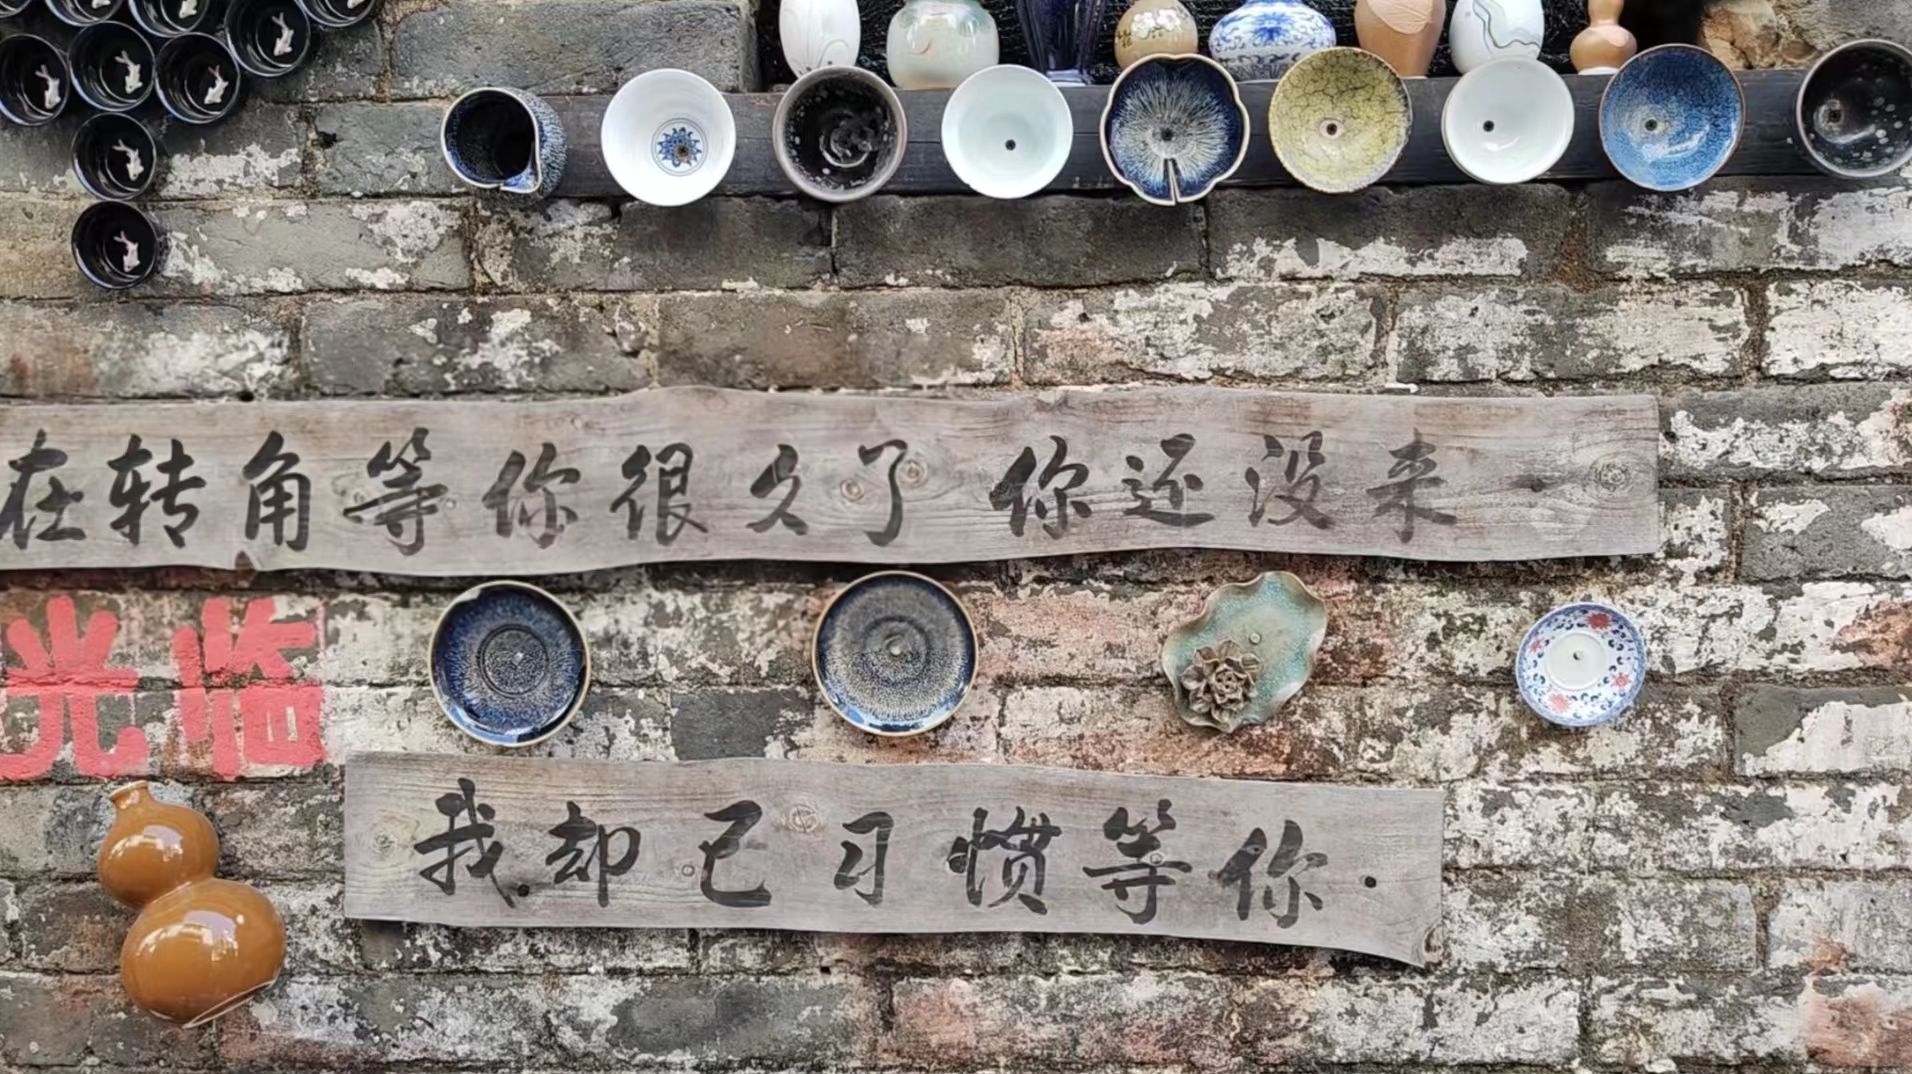 在转角等你很久了 你还没来
光临
我却已习惯等你.